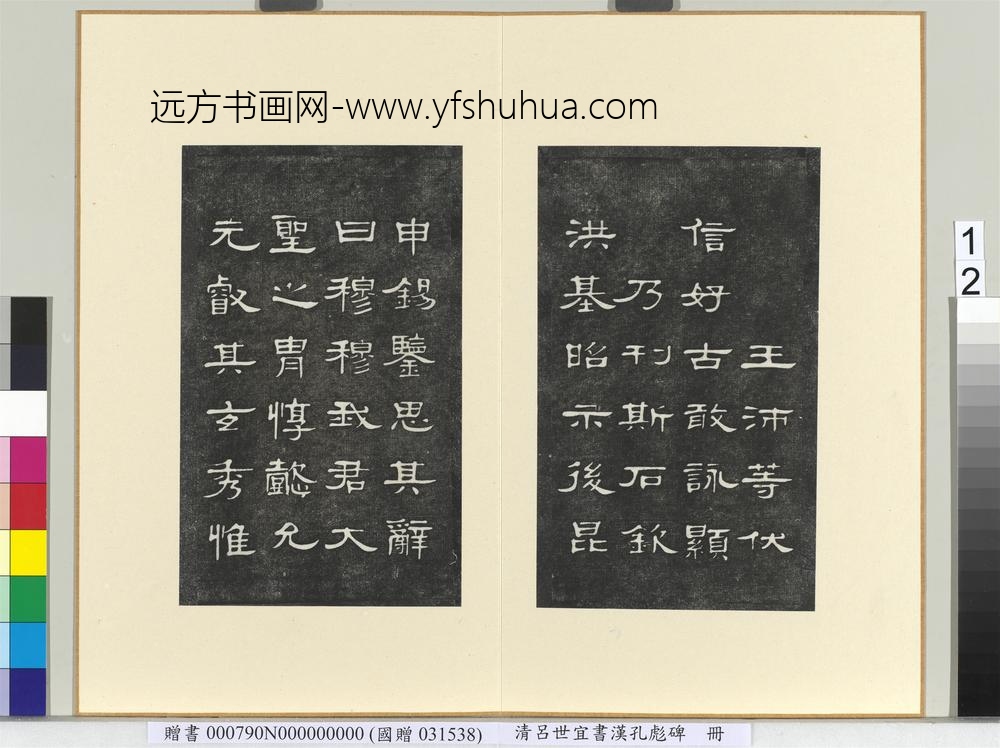 远方书画网-www.yfshuhua.com
王沛等伏
信好古敢詠顯
乃刊斯石欽
洪基昭示後昆
申錫鑒思其辭
曰穆穆我君大
聖之胄惇懿允
元叡其玄秀惟
1
2
贈書 000790N000000000 (國贈 031538) 清呂世宜書漢孔彪碑 冊